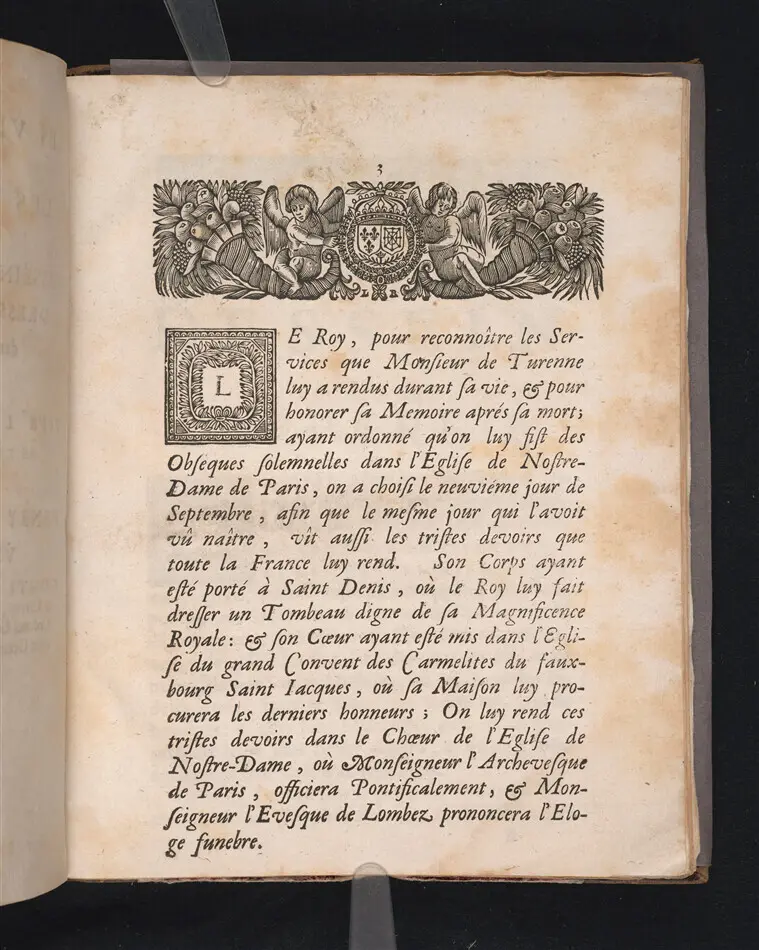 3
L R
LE Roy, pour reconnoître les Ser-
vices que Monſieur de Turenne
luy a rendus durant ſa vie, & pour
honorer ſa Memoire aprés ſa mort;
ayant ordonné qu'on luy fiſt des
Obſeques ſolemnelles dans l'Egliſe de Noſtre-
Dame de Paris, on a choiſi le neuviéme jour de
Septembre, afin que le meſme jour qui l'avoit
vû naître, vît auſſi les triſtes devoirs que
toute la France luy rend. Son Corps ayant
eſté porté à Saint Denis, où le Roy luy fait
dreſſer un Tombeau digne de ſa Magnificence
Royale: & ſon Cœur ayant eſté mis dans l'Egli-
ſe du grand Convent des Carmelites du faux-
bourg Saint Iacques, où ſa Maiſon luy pro-
curera les derniers honneurs; On luy rend ces
triſtes devoirs dans le Chœur de l'Egliſe de
Noſtre-Dame, où Monſeigneur l'Archeveſque
de Paris, officiera Pontificalement, & Mon-
ſeigneur l'Eveſque de Lombez prononcera l'Elo-
ge funebre.